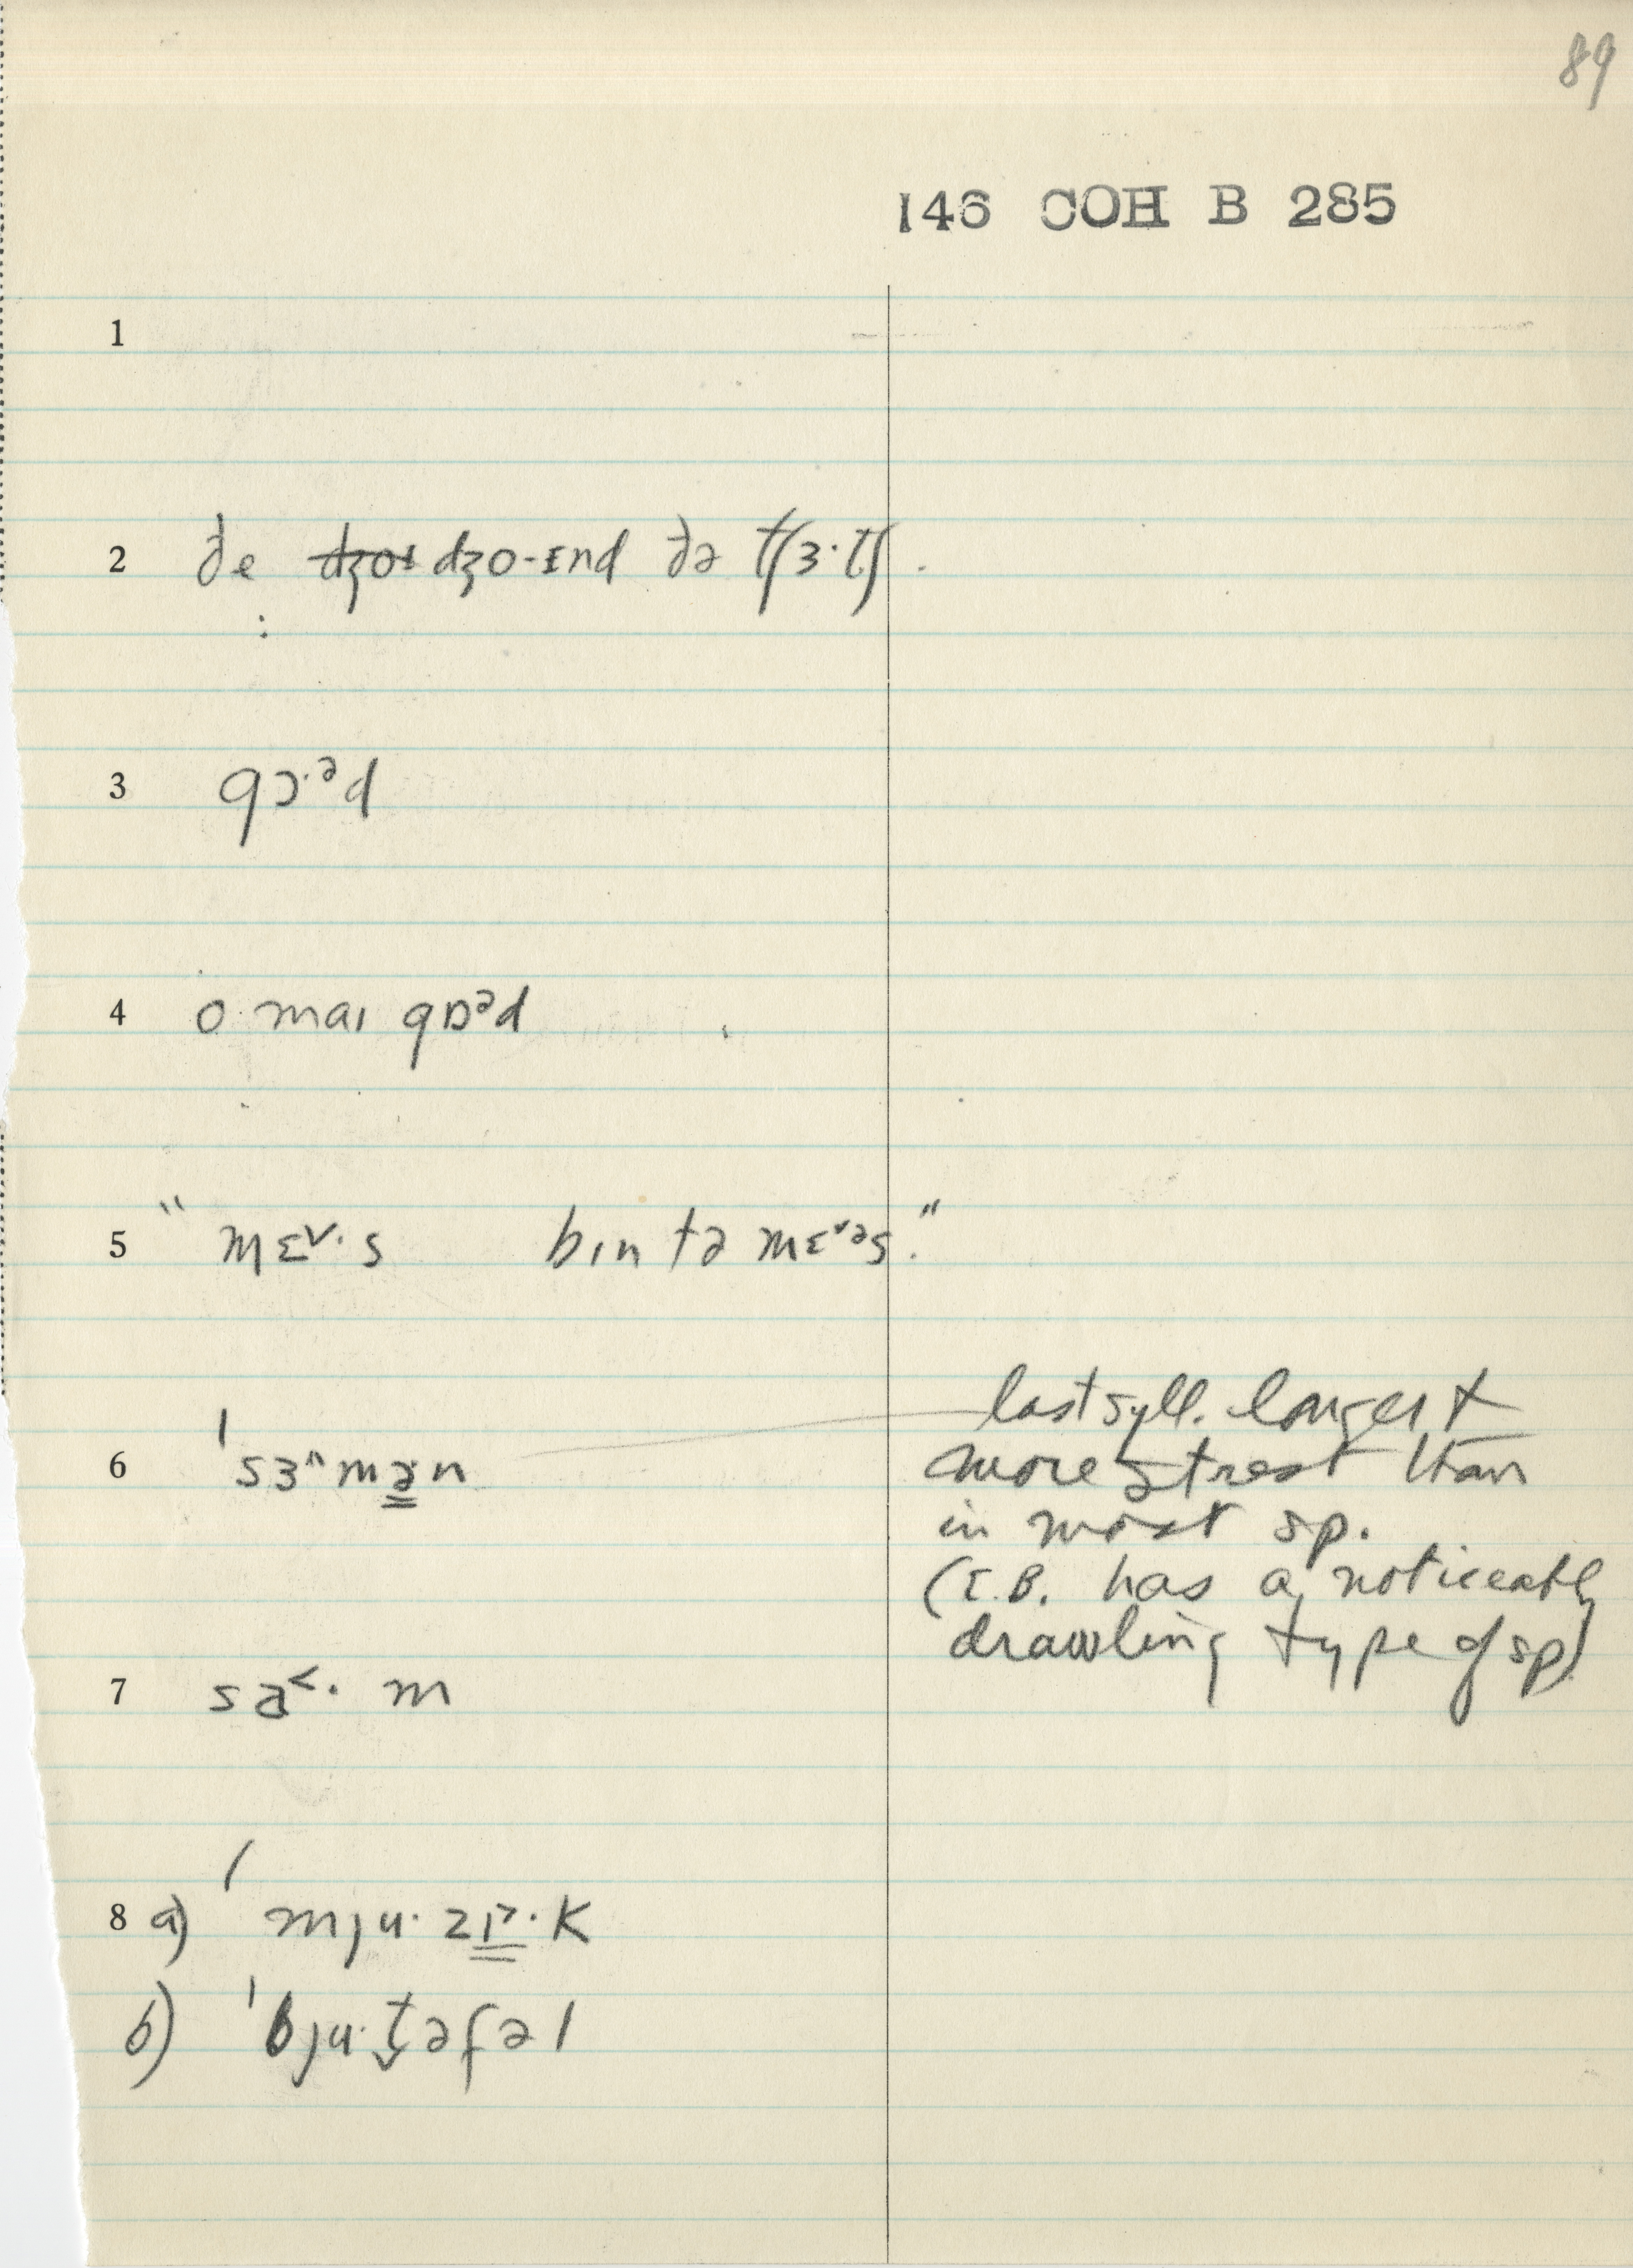 89
146 COH B 285
1
2 ðe dʒoɪ dʒo-ɪnd ðə tʃɜ·tʃ.
3 gɔ·ᵊd
4 o· maɪ gɒᵊd
5 " mɛ˅·s bɪn tə mɛ˅ᵊs."
6 ˈsɜ^mə̳n
7 sa˂·m
8 a) ˈmju·zɪ̳˃·k
b) ˈbju·t̬əfəl
last syll. longer +
more strest than
in most sp.
(I.B. has a noticeably
drawling type of sp)